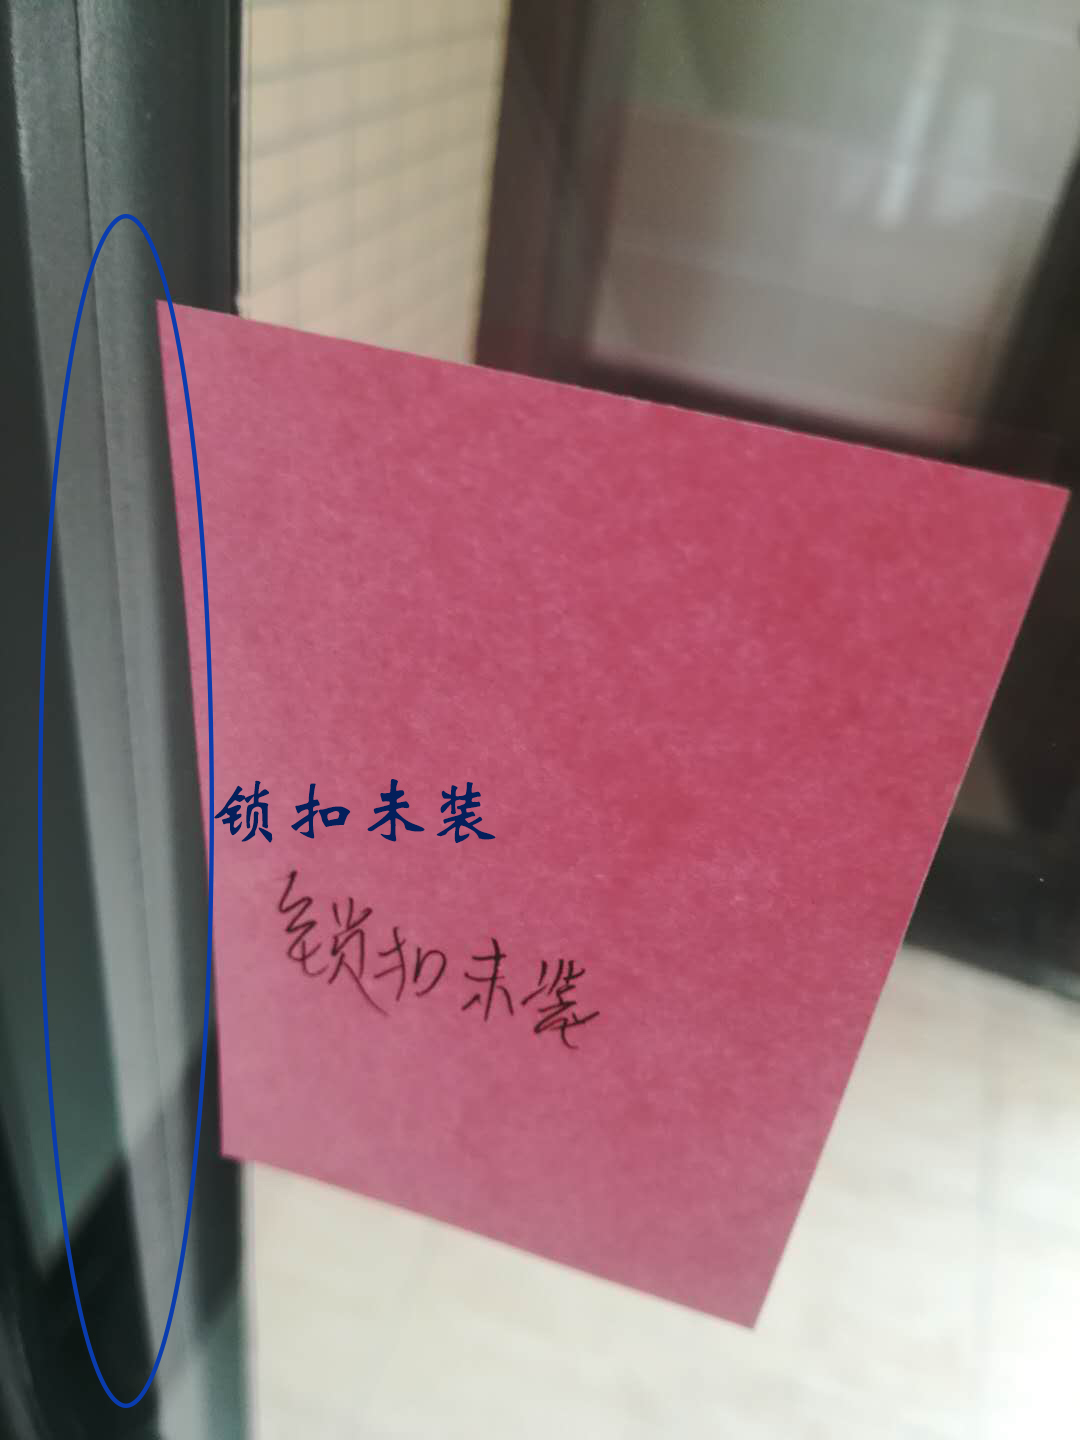 锁扣未装
锁扣未装